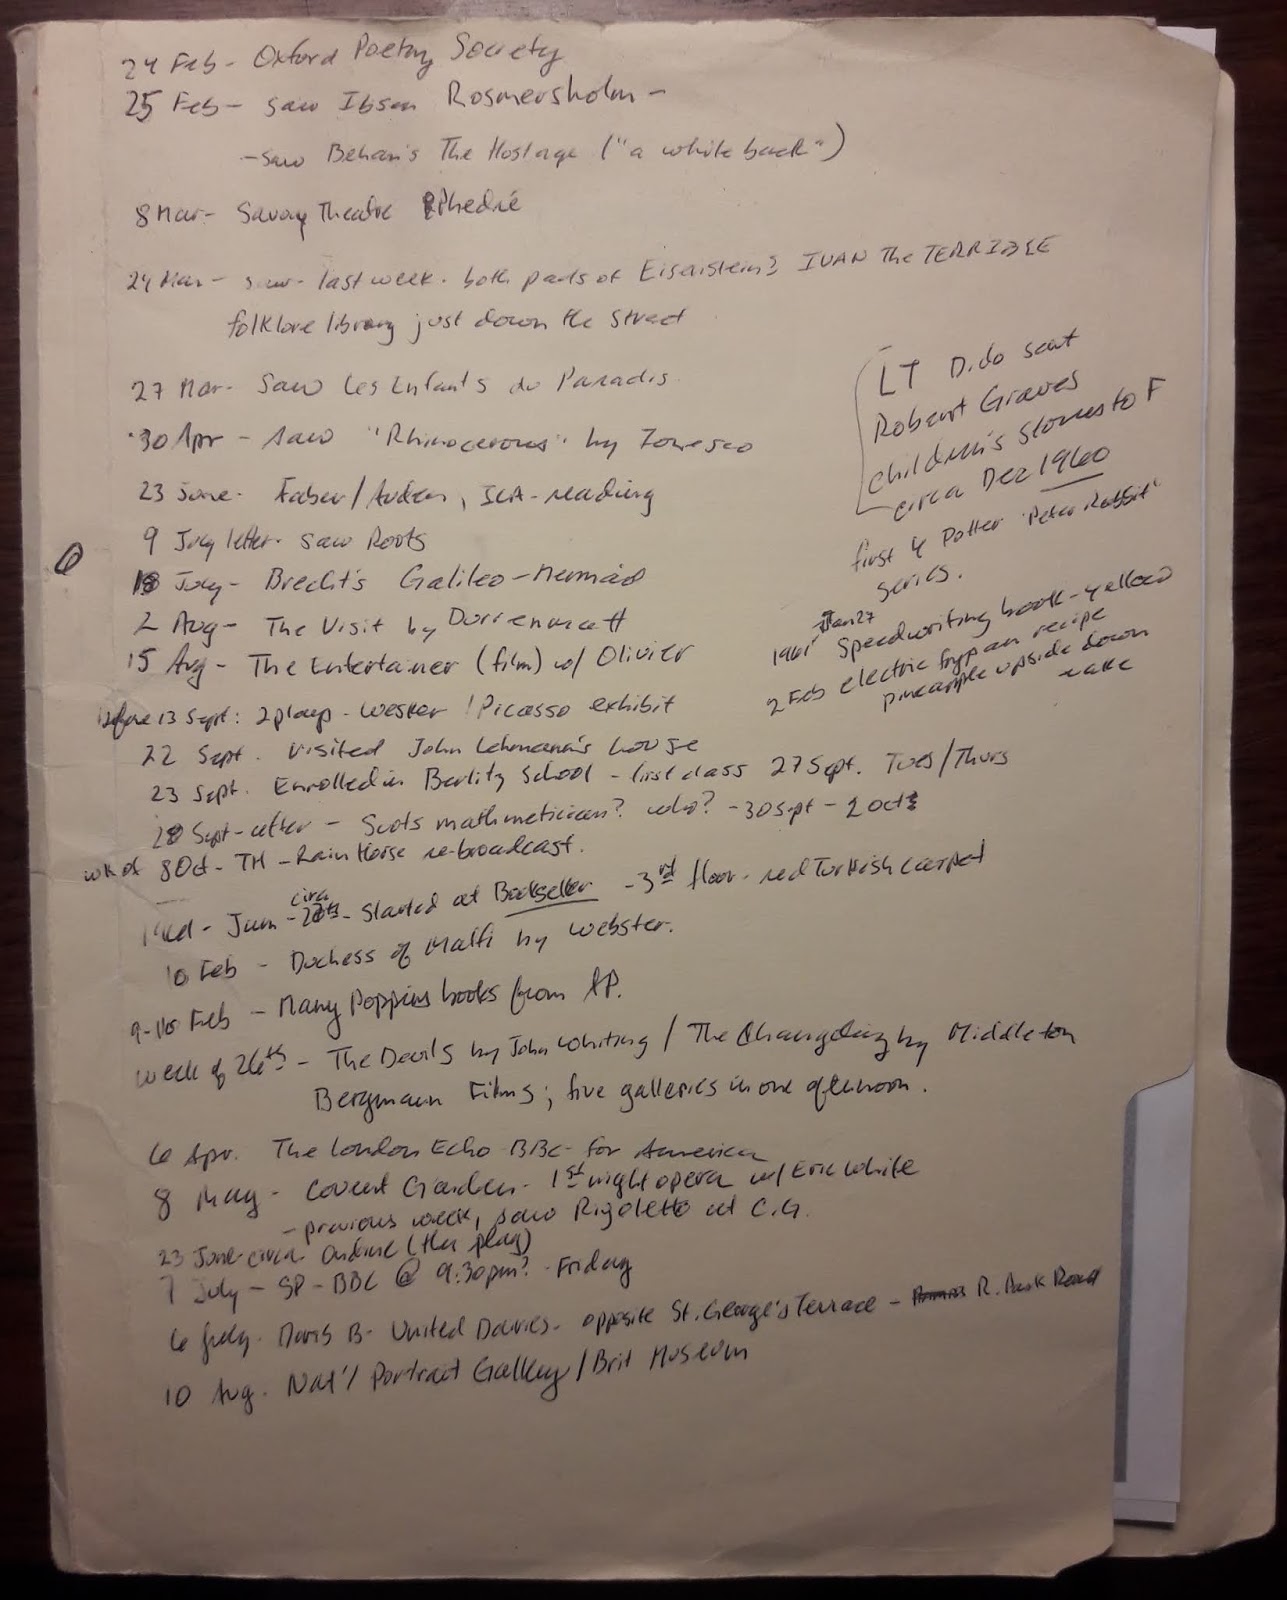 24 Feb - Oxford Poetry Society
25 Feb - saw Ibsen Rosmersholm -
- saw Behan's The Hostage ("a while back")
8 Mar - Savoy Theatre Phedré
24 Mar - saw - last week - both parts of Eisenstein's IVAN The TERRIBLE
folklore library just down the street
27 Mar - Saw Les Enfants du Paradis
30 Apr - saw "Rhinocerous" by Ionesco
23 June - Faber/Auden, ICA - reading
9 July letter - saw Roots
18 July - Brecht's Galileo - Mermaid
2 Aug - The Visit by Durrenmatt
15 Aug - The Entertainer (film) w/ Olivier
before 13 Sept: 2 plays - Wesker / Picasso exhibit
22 Sept. Visited John Lehmann's house
23 Sept. Enrolled in Berlitz School - first class 27 Sept. Tues/Thurs
28 Sept - after - Scots mathmetician? who? - 30 Sept - 2 Oct
wk of 8 Oct - TH - Rain Horse re-broadcast.
Jan - circa 27th - Started at Bookseller - 3rd floor - red Turkish carpet
10 Feb - Duchess of Malfi by Webster.
9-16 Feb - Mary Poppins books from AP.
week of 26th - The Devils by John Whiting / The Changeling by Middleton
Bergmann Films; five galleries in one afternoon.
6 Apr. The London Echo - BBC - for America
8 May - Covent Garden - 1st night opera w/ Eric White
- previous week, saw Rigoletto at C.G.
23 June - circa - Ondine (the play)
7 July - SP - BBC @ 9:30pm? - Friday
6 July - Doris B - United Dairies - opposite St. George's Terrace - R. Park Road
10 Aug. Nat'l Portrait Gallery / Brit Museum
LT Dido sent
Robert Graves
children's stories to F
circa Dec 1960
first 4 Potter 'Peter Rabbit'
series.
1961 Jan 27 Speedwriting book - yellow
2 Feb electric frypan recipe
pineapple upside down
cake